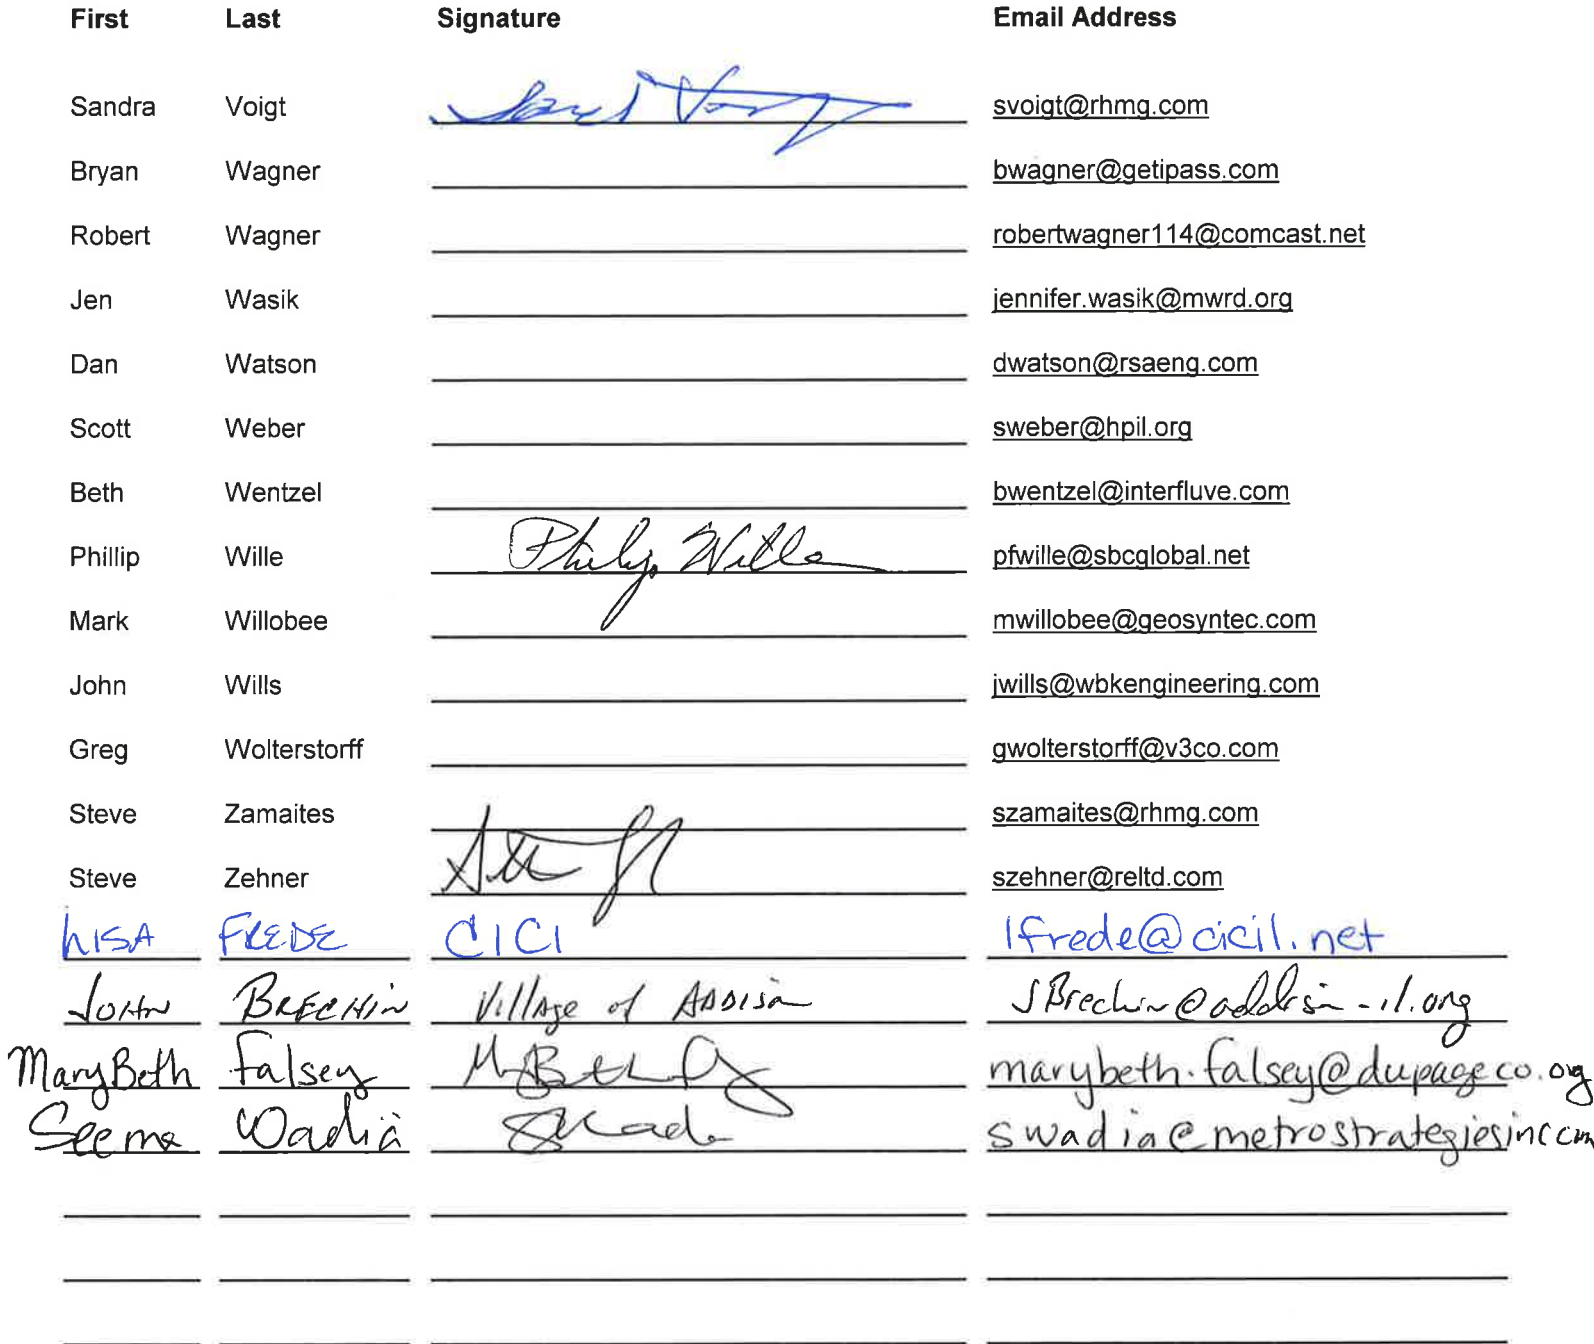 First Last Signature Email Address
Sandra Voigt svoigt@rhmg.com
Bryan Wagner bwagner@getipass.com
Robert Wagner robertwagner114@comcast.net
Jen Wasik jennifer.wasik@mwrd.org
Dan Watson dwatson@rsaeng.com
Scott Weber sweber@hpil.org
Beth Wentzel bwentzel@interfluve.com
Phillip Wille Philip Wille pfwille@sbcglobal.net
Mark Willobee mwillobee@geosyntec.com
John Wills jwills@wbkengineering.com
Greg Wolterstorff gwolterstorff@v3co.com
Steve Zamaites szamaites@rhmg.com
Steve Zehner szehner@reltd.com
LISA FREDE CICI lfrede@cicil.net
JOHN BRECHIN Village of ADDISON JBrechin@addison-il.org
MaryBeth Falsey marybeth.falsey@dupageco.org
Seema Wadia swadia@metrostrategiesinc.com